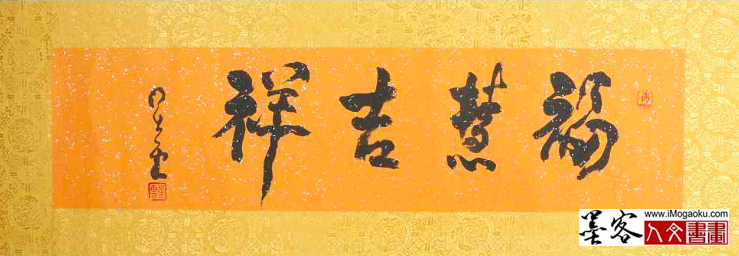 福慧吉祥
墨客
www.iMogaoku.com
人文書畫